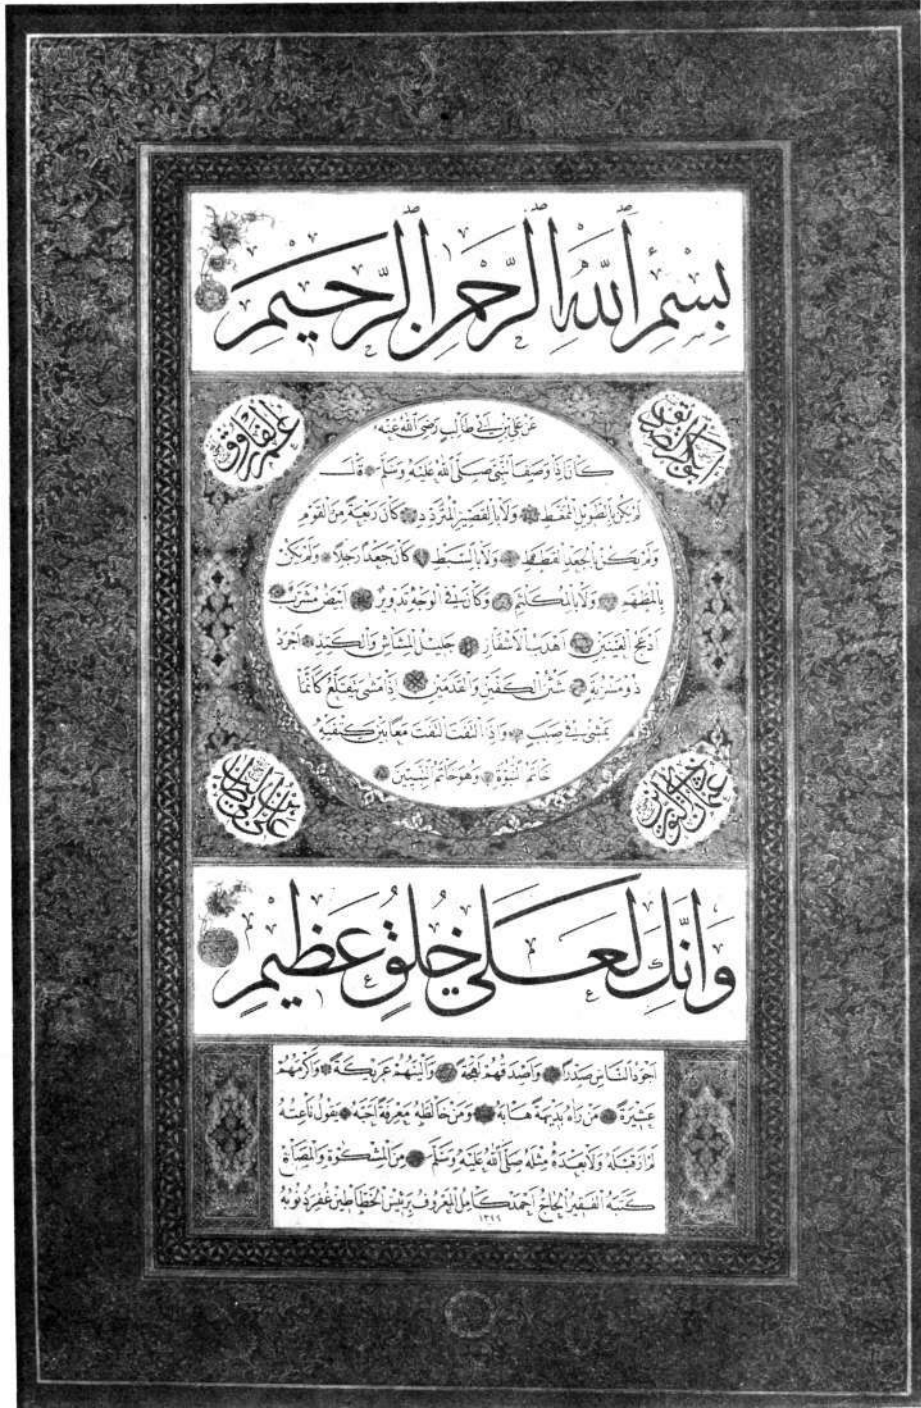 بسم الله الرحمن الرحيم
عن علي بن أبي طالب رضي الله عنه
كان إذا وصف النبي صلى الله عليه وسلم قال
لم يكن بالطويل الممغط ولا بالقصير المتردد كان ربعة من القوم
ولم يكن بالجعد القطط ولا بالسبط كان جعدا رجلا ولم يكن
بالمطهم ولا بالمكلثم وكان في الوجه تدوير أبيض مشرب
أدعج العينين أهدب الأشفار جليل المشاش والكتد أجرد
ذو مسربة شثن الكفين والقدمين إذا مشى يتقلع كأنما
يمشي في صبب وإذا التفت التفت معا بين كتفيه
خاتم النبوة وهو خاتم النبيين
وإنك لعلى خلق عظيم
أجود الناس صدرا وأصدقهم لهجة وألينهم عريكة وأكرمهم
عشيرة من رآه بديهة هابه ومن خالطه معرفة أحبه يقول ناعته
لم أر قبله ولا بعده مثله صلى الله عليه وسلم من المشكوة والمصابيح
كتبه الفقير الحاج أحمد كامل المعروف برئيس الخطاطين غفر ذنوبه